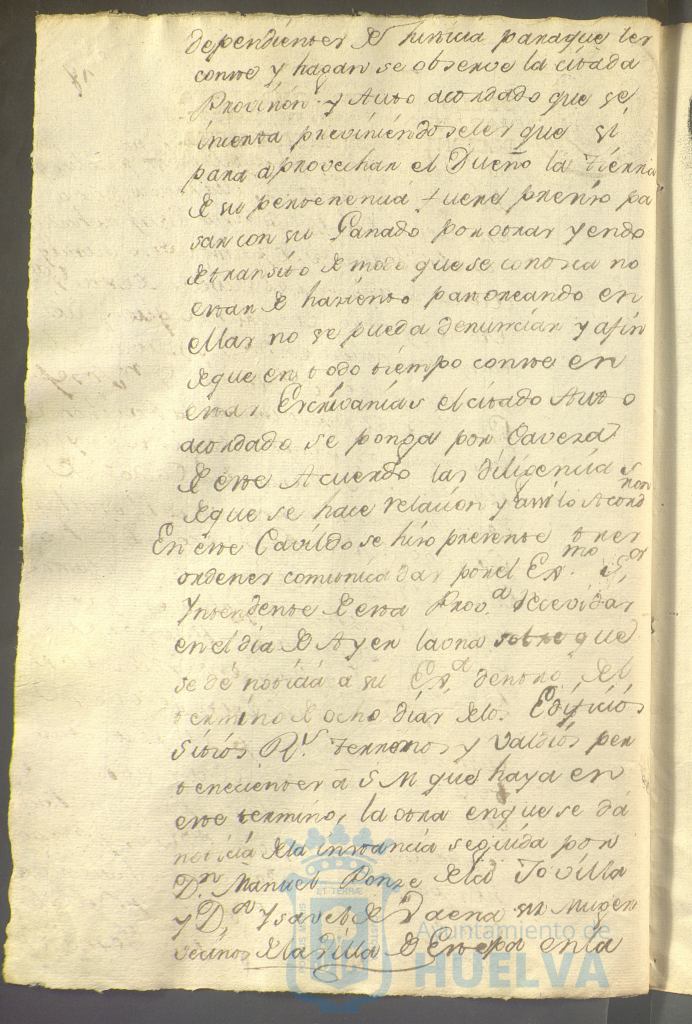 dependientes de Justicia paraque les
conste y hagan se observe la citada
Provision y Auto acordado que se
inserta previniendoseles que si
para aprovechar el Dueño la tierra
de su pertenencia fuere preciso pa
sar con su Ganado por otras yendo
de transito de modo que se conosca no
estar de haziento pastoreando en
ellas no se pueda denunciar y afin
deque en todo tiempo conste en
estas Escrivanias el citado Auto
acordado se ponga por Cavera
de este Acuerdo las diligencias
deque se hace relacion y assi lo Acord
aron
En este Cavildo se hizo presente tres
ordenes comunicadas por el Exmo. Sor
Yntendente de esta Provª recevidas
en el dia de Ayer la una sobre que
se dé noticia á su Exª dentro del
termino de ocho dias de los Edificios
Sitios Rs. terrenos y Valdios per
tenecientes a S M que haya en
este termino, la otra en que se dá
noticia de la instancia seguida por
Dn Manuel Ponze de la Tovilla
y Dª Ysavel de Vaena su Muger
vecinos de la Villa de Estepa en la
Ayuntamiento de
HUELVA